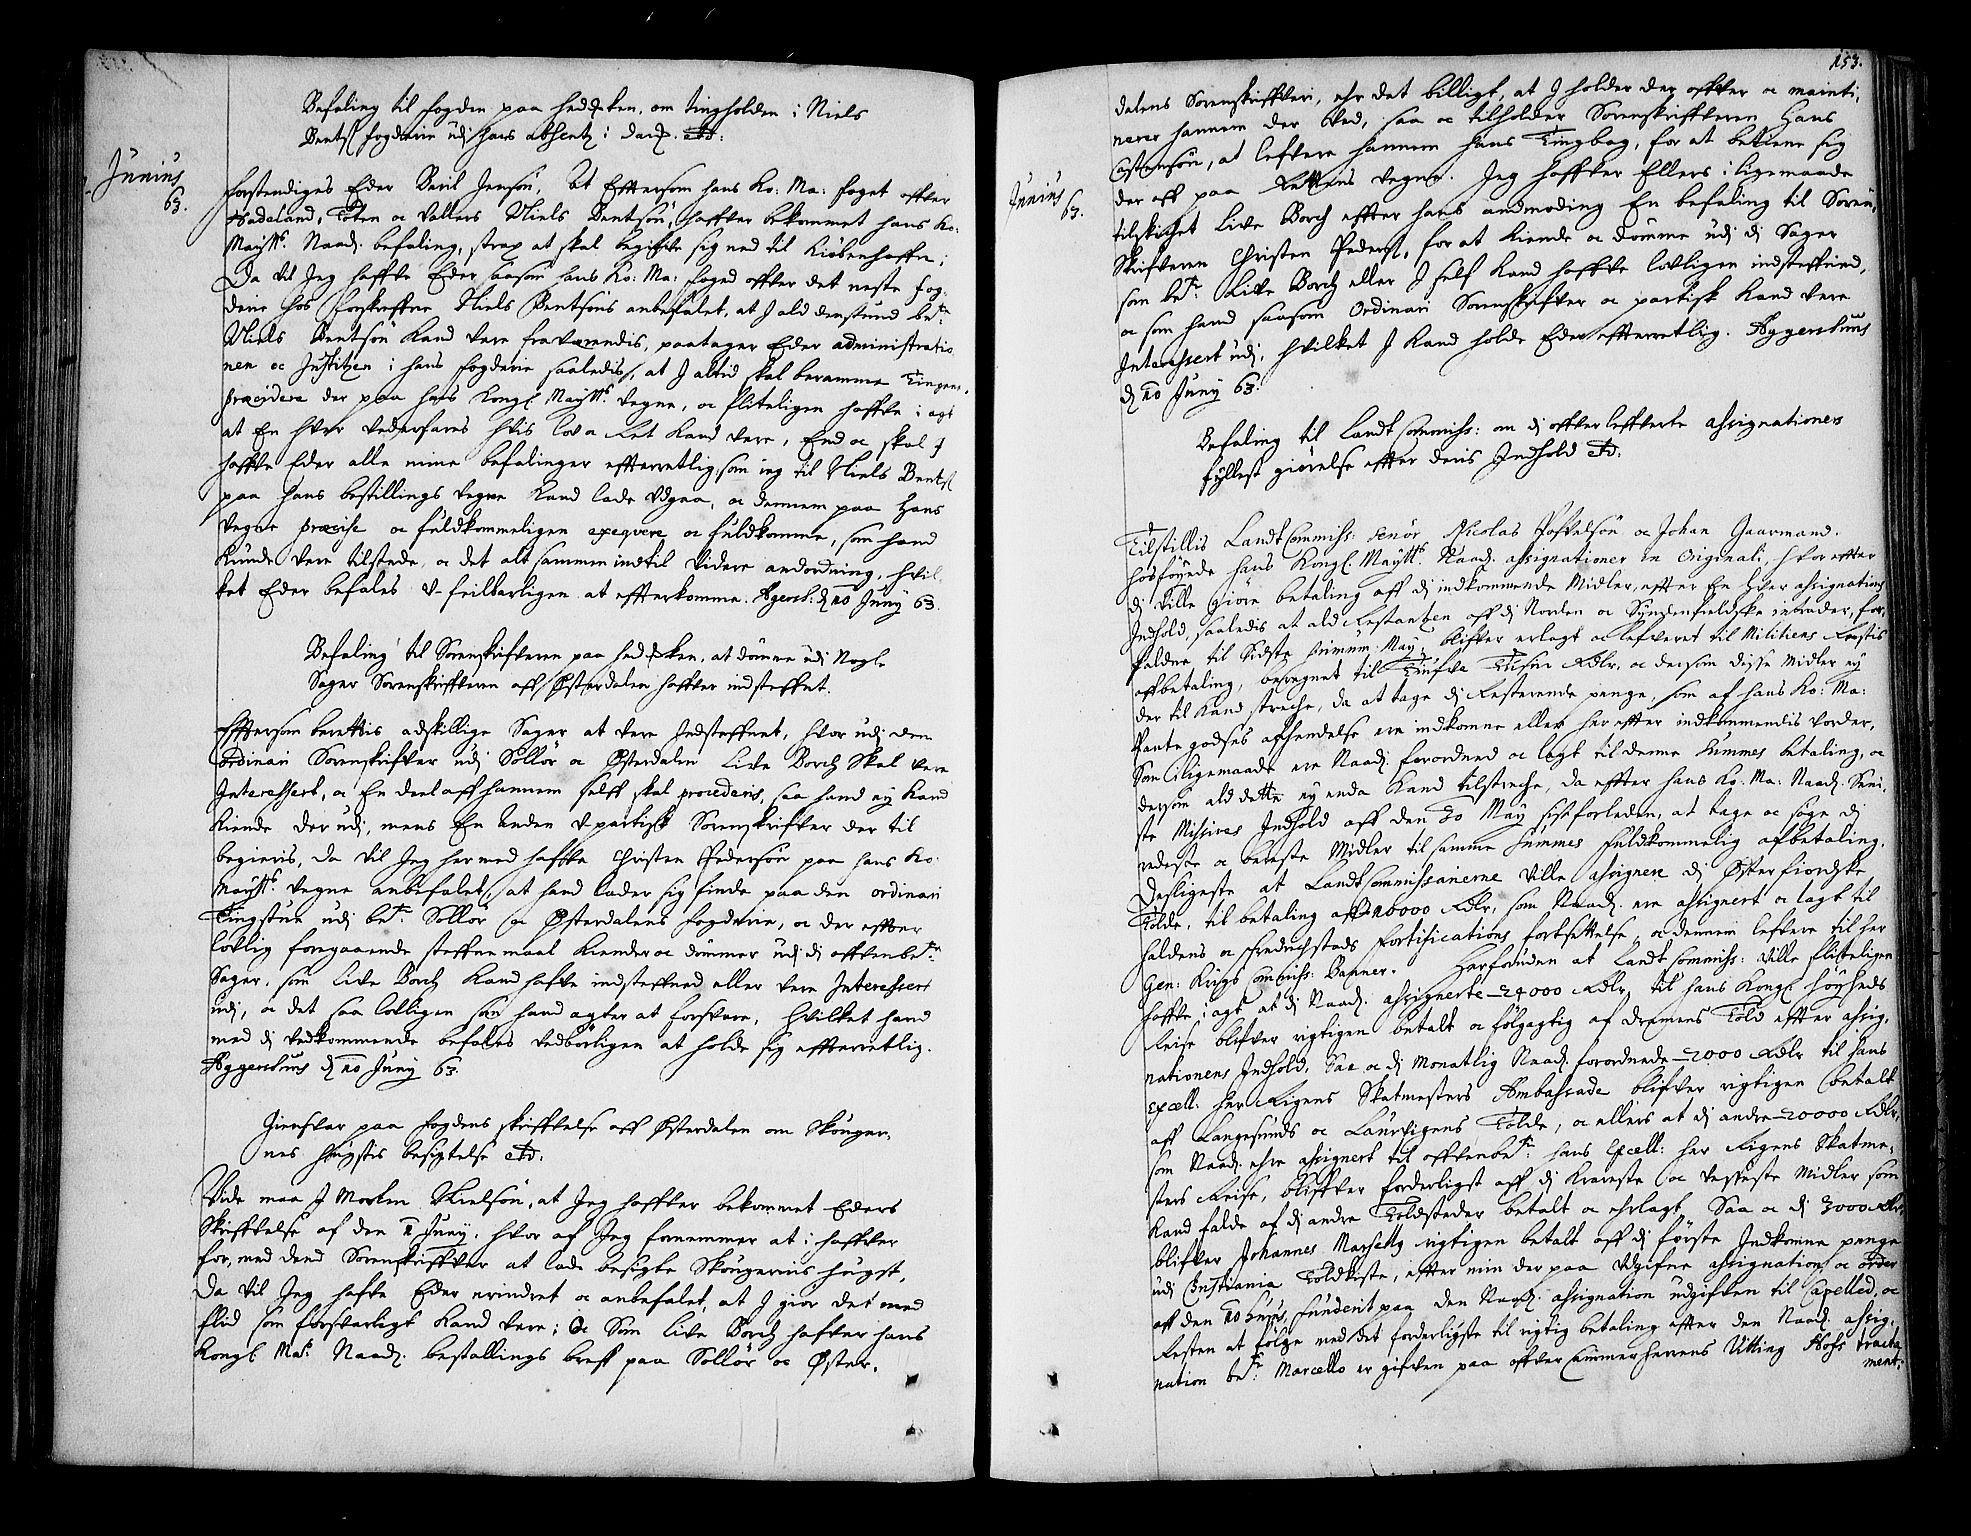 Befaling til fogden paa Hedemken, om tingholden i Niels
Bentsß fogderie udj hans absentz i Danß. etc:
Junius
63.
Forstendiges Eder Bertil Jensön, At Efftersom hans Ko: Ma: foget offuer
Hadeland, Toten oc Valders Niels Bentsön, haffver bekommet hans Ko:
Maytts. Naad. befaling, strax at skal begiffve sig ned til Kiöbenhaffn;
Da vil Jeg haffve Eder saasom hans Ko: Ma: foged offver det neste fog-
derie hos forskreffne Niels Bentsöns anbefalet, at J ald denstund bete.
Niels Bentsön kand vere fraverendis, paatager Eder administratio
nen oc Justitzen i hans fogderie saaledis, at J altid skal beramme Tingene,
præsidere der paa hans Kongl Maytts. vegne, oc flitteligen haffve i agt
at En hver vederfares hvis lov oc Ret kand vere, End oc skal J
haffve Eder alle mine befalinger effterretlig, som ieg til Niels Bentß
paa hans bestillings vegne kand lade udgaa, oc dennem paa hans
vegne præcise oc fuldkommeligen exeqvere oc fuldkomme, som hand
kunde vere tilstede, oc det alt sammen indtil videre andordning, hvil-
ket Eder befales u-feilbarligen at effterkomme. Agersh: d 10 Juny 63.
Befaling til Sorenskrifveren paa Hedemken, at dömme udj Nogle
Sager Sorenskriffveren aff Østerdalen haffver indsteffnet.
Efftersom berettis adskillige Sager at vere Indsteffnet, hvor udj den
ordinari Sorenskrifver udj Sollör oc Østerdalen Live Borch skal vere
Interessert, oc En deel aff hannem self skal procederis, saa hand ey kand
kiende der udj, mens En Anden u-partisk Sorenskrifver der til
begieris, da vil Jeg hermed haffve Christen Pedersön paa hans Ko:
Maytts. vegne anbefalet, at hand lader sig finde paa den ordinari
Tingstue udj bete. Sollör oc Østerdalens fogderie, oc der effter
lovlig foregaaende steffnemaal kiender oc dömmer udj di offvenbete.
Sager, som Live Borch kand hafve indsteffned eller vere Interessert
udj, oc det saa lovligen som hand agter at forsvare, hvilket hand
med di vedkommende befales vedbörligen at holde sig effterretlig.
Aggershuus d 10 Juny 63.
Giensvar paa fogdens skriffvelse aff Østerdalen om Skouger-
nes hugstis besigtelse etc:
Vide maa J Morten Nielsön, at Jeg haffver bekommet Eders
Skriffvelse af den 1 Juny, hvor af Jeg fornemmer at i haffver
for, med dend Sorenskriffver at lade besigte Skougernis hugst,
Da vil Jeg hafve Eder erindret oc anbefalet, at J giör det med
fliid som forsvarligt kand vere; Oc Som Live Borch hafver hans
Kongl Mats. Naad. bestallings breff paa Sollör oc Øster-
153.
dalens Sorenskriffveri, ehr det billigt, at J holder der offver oc mainti-
nerer hannem der ved, saa oc tilholder Sorenskriffveren Hans
Castensön, at leffvere hannem hans Tingbog, for at betiene sig
der aff paa Rettens vegne. Jeg haffver Ellers i ligemaade
tilskichet Live Borch effter hans andmoding En befaling til Soren-
Junius
63.
skrifveren Christen Pedersß, for at kiende oc dömme udj di Sager
som bete. Live Borch eller J self kand haffve lovligen indsteffned,
oc som hand saasom Ordinari Sorenskrifver oc partisk kand vere
Interessert udj, hvilket J kand holde Eder effterretlig. Aggershuus
d 10 Juny 63.
Befaling til Landt Commiss: om di offverleffverte assignationers
fyllest giörelse effter deris Indhold etc:
Tilstillis Landt Commiss: Senör Nicolas Poffvelsön oc Johan Gaarmand.
hosföyede hans Kongl. Maytts. Naad. assignationer in Originali, hvor effter
di ville giöre betaling aff di indkommende Midler, effter En hver assignations
Indhold, saaledis at ald Restantzen aff di Norden oc Syndenfieldske intrader, for-
faldne til Sidste primum May, blifver erlagt oc lefveret til Militiens Restis
affbetaling, beregnet til Tusinde Rdlr, oc dersom disse Midler ey
der til kand streche, da at tage di Resterende penge, som af hans Ko: Ma:
Pante godses afhendelse ere indkomne eller her effter indkommendis vorder,
Som iligemaade ere Naad. forordned oc lagt til denne Summes betaling, oc
dersom ald dette ey enda kand tilstreche, da effter hans Ko: Ma: Naad. Seni-
ste Missives Indhold aff den 30 May sistforleden, at tage oc söge di
redeste oc beteste Midler til samme Summes fuldkommelig afbetaling.
Desligeste at Landt Commissarierne ville assignere di Østerfiordske
Tolde, til betaling aff 16000 Rdlr, som Naad. ere assignert oc lagt til
Haldens oc Fredrichstads Fortifications fortsettelse, oc dennem leffvere til her
Gen: Krigs Commiss: Banner. Herforuden at Landt Commiss: ville flitteligen
haffve i agt, at di Naad. assignerte 24000 Rdlr til hans Kongl höyheds
Reise blifver rigtigen betalt oc fölgagtig af Drammens Told effter assig-
nationens Indhold, Saa oc di Monatlig Naad. forordnede 2000 Rdlr til hans
Excell: her Rigens Skatmesters Ambassade blifver rigtigen betalt
aff Langesunds oc Laurvigens Tolde, oc ellers at di andre 20000 Rdlr,
som Naad. ehre assignert til offvenbete. hans Excell: her Rigens Skatme-
sters Reise, bliffver forderligst aff di klareste oc visseste Midler som
kand falde af di andre Toldsteder betalt oc ehrlagt, Saa oc di 3000 Rdlr
blifver Johannes Marselig rigtigen betalt aff di förste Indkomne penge
udj Christiania Toldkiste, effter min der paa udgifne assignation oc order
aff den 10 hujus, funderit paa den Naad. assignation udgifven til Capelled, oc
Resten at fölge med det forderligste til rigtig betaling effter den Naad. assig-
nation bete. Marcello er gifven paa offver Cammerherrens Hofs tracta
ment: